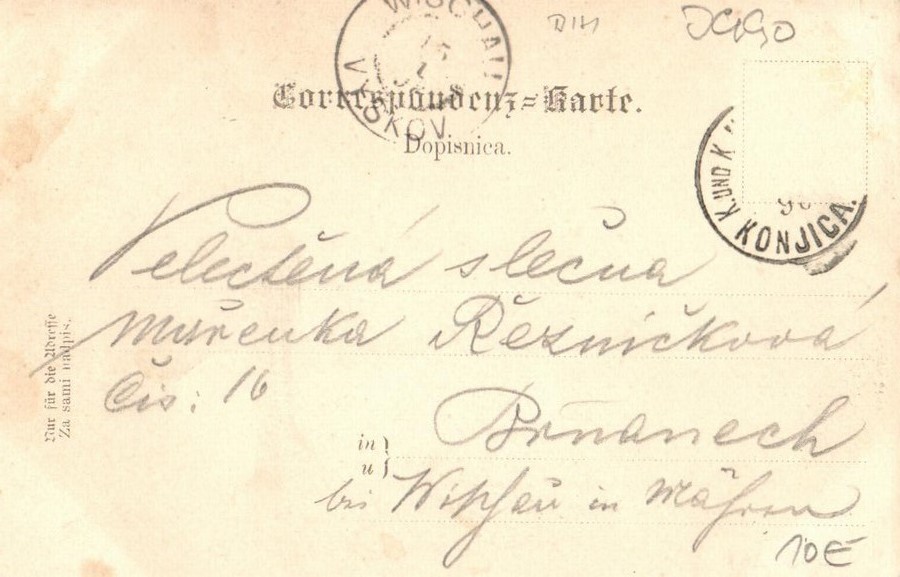 WISCHAU
15
VYŠKOV
DIH
Correspondenz-Karte.
Dopisnica.
K. UND K.
98
KONJICA.
Velectěná slečna
Mařenka Řezníčková
Čís: 16
Brňanech
in
u
bei Wischau in Mähren
Nur für die Adresse
Za sami nadpis.
10€